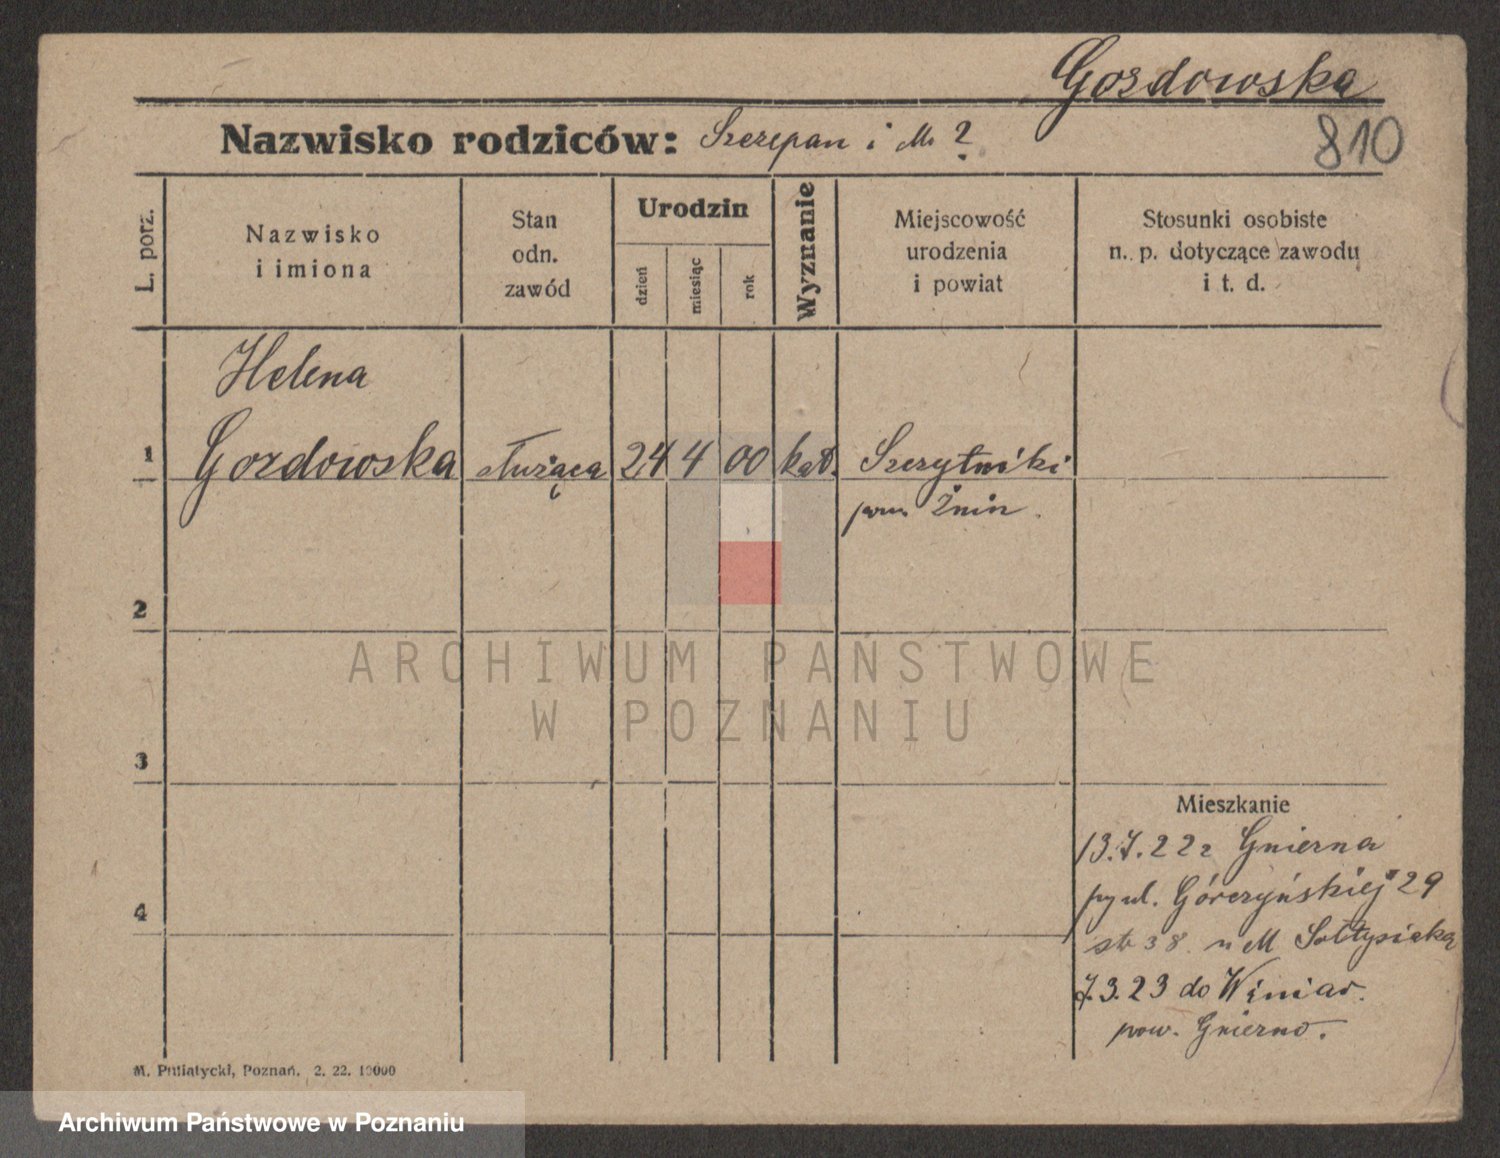 Gozdowska
810
Nazwisko rodziców: Szczepan i M. ?
L. porz.
Nazwisko
i imiona
Stan
odn.
zawód
Urodzin
dzień
miesiąc
rok
Wyznanie
Miejscowość
urodzenia
i powiat
Stosunki osobiste
n. p. dotyczące zawodu
i t. d.
Helena
1 Gozdowska służąca 24 4 00 kat. Szczytniki
pow. Żnin.
2
ARCHIWUM PAŃSTWOWE
W POZNANIU
3
Mieszkanie
13.7.22 z Gniezna
4
ul. Górczyńskiej 29
str 38 u M Sołtysiaka
7.3.23 do Winiar.
pow. Gniezno.
M. Putiatycki, Poznań. 2. 22. 10000
Archiwum Państwowe w Poznaniu